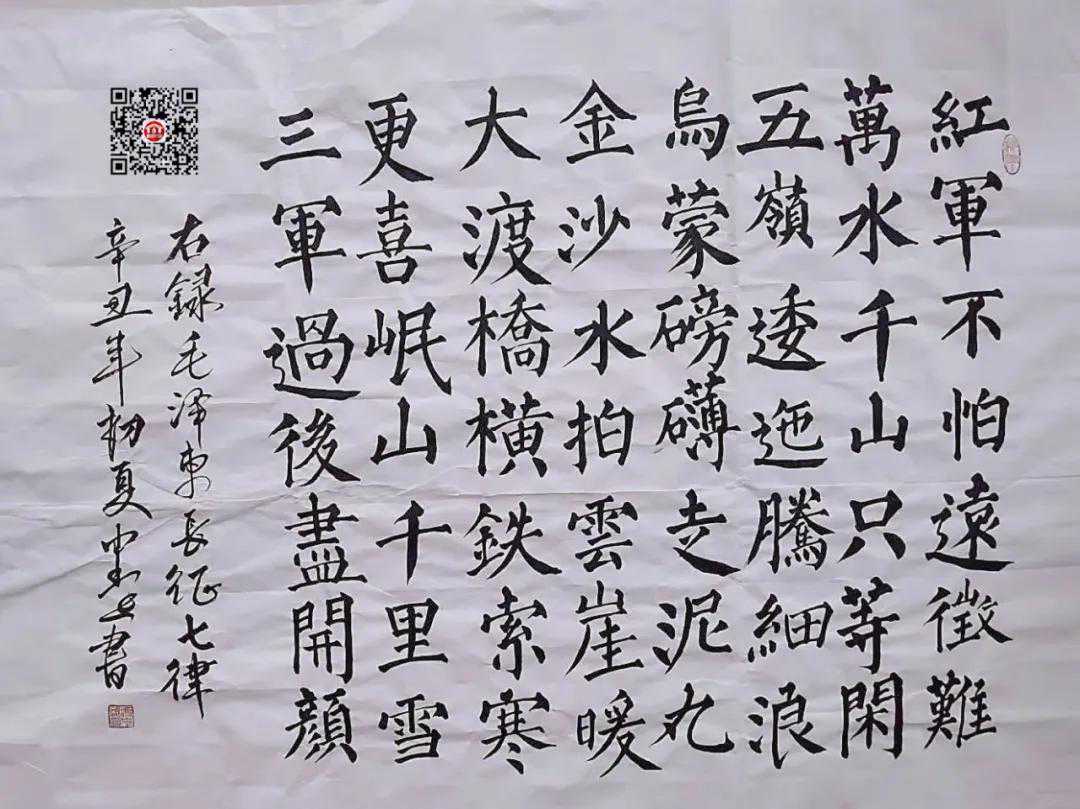 紅軍不怕遠徵難
萬水千山只等閑
五嶺逶迤騰細浪
烏蒙磅礴走泥丸
金沙水拍雲崖暖
大渡橋橫鉄索寒
更喜岷山千里雪
三軍過後盡開顔
右録毛泽東長征七律
辛丑年初夏書